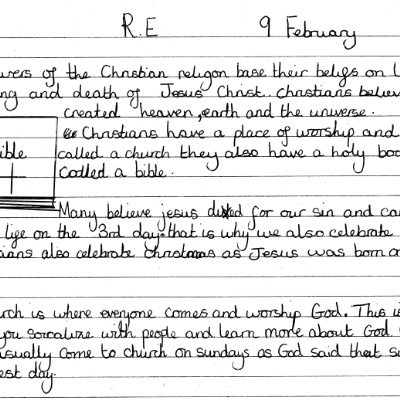 R.E 9 February
wers of the Christian religon base their beliefs on L
ng and death of Jesus Christ. Christians believ
created heaven, earth and the universe.
Christians have a place of worship and
ible called a church they also have a holy boo
called a bible.
Many believe jesus died for our sin and ca
life on the 3rd day that is why we also celebrate
ians also celebrate christmas as Jesus was born on
rch is where everyone comes and worship God. This is
you socalize with people and learn more about God.
usually come to church on sundays as God said that su
est day.